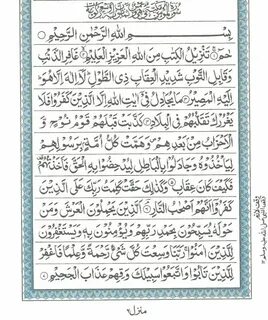 بِسْمِ اللهِ الرَّحْمٰنِ الرَّحِيْمِ
حٰمٓ تَنْزِيْلُ الْكِتٰبِ مِنَ اللهِ الْعَزِيْزِ الْعَلِيْمِ غَافِرِ الذَّنْبِ
وَقَابِلِ التَّوْبِ شَدِيْدِ الْعِقَابِ ذِى الطَّوْلِ لَآ اِلٰهَ اِلَّا هُوَ
اِلَيْهِ الْمَصِيْرُ مَا يُجَادِلُ فِيْٓ اٰيٰتِ اللهِ اِلَّا الَّذِيْنَ كَفَرُوْا فَلَا
يَغْرُرْكَ تَقَلُّبُهُمْ فِى الْبِلَادِ كَذَّبَتْ قَبْلَهُمْ قَوْمُ نُوْحٍ وَّ
الْاَحْزَابُ مِنْۢ بَعْدِهِمْ وَهَمَّتْ كُلُّ اُمَّةٍۢ بِرَسُوْلِهِمْ
لِيَاْخُذُوْهُ وَجَادَلُوْا بِالْبَاطِلِ لِيُدْحِضُوْا بِهِ الْحَقَّ فَاَخَذْتُهُمْ
فَكَيْفَ كَانَ عِقَابِ وَكَذٰلِكَ حَقَّتْ كَلِمَتُ رَبِّكَ عَلَى الَّذِيْنَ
كَفَرُوْٓا اَنَّهُمْ اَصْحٰبُ النَّارِ اَلَّذِيْنَ يَحْمِلُوْنَ الْعَرْشَ وَمَنْ
حَوْلَهٗ يُسَبِّحُوْنَ بِحَمْدِ رَبِّهِمْ وَيُؤْمِنُوْنَ بِهٖ وَيَسْتَغْفِرُوْنَ
لِلَّذِيْنَ اٰمَنُوْا رَبَّنَا وَسِعْتَ كُلَّ شَيْءٍ رَّحْمَةً وَّعِلْمًا فَاغْفِرْ
لِلَّذِيْنَ تَابُوْا وَاتَّبَعُوْا سَبِيْلَكَ وَقِهِمْ عَذَابَ الْجَحِيْمِ
منزل ٦